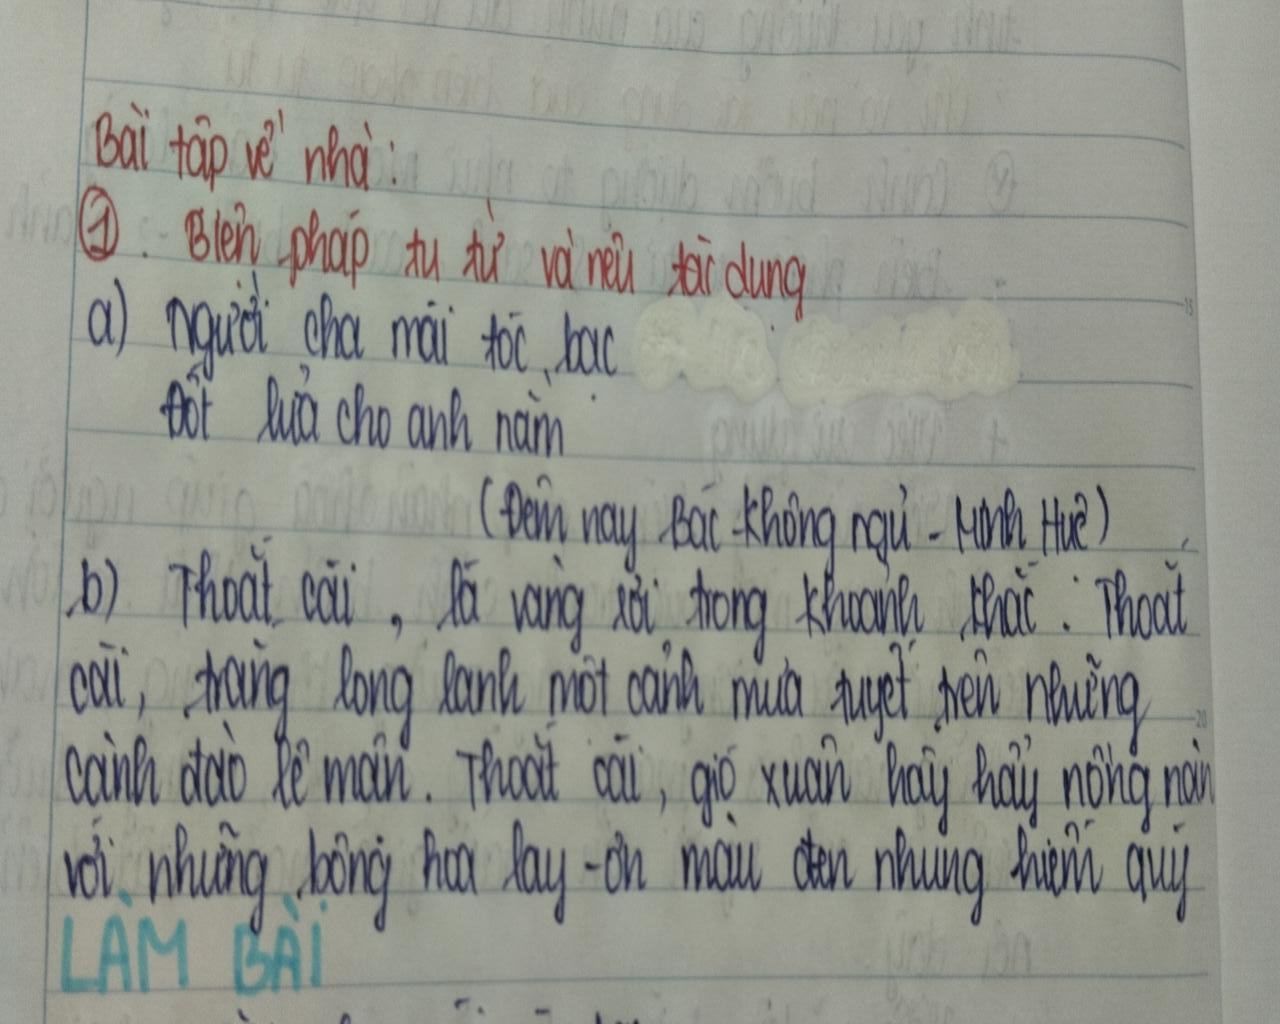 Bài tập về nhà:
①. Biện pháp tu từ và nêu tác dụng
a) Người cha mái tóc bạc
Đốt lửa cho anh nằm
(Đêm nay Bác không ngủ - Minh Huệ)
b) Thoắt cái, lá vàng rơi trong khoảnh khắc. Thoắt
cái, trắng long lanh một cảnh mưa tuyết trên những
cành đào lê mận. Thoắt cái, gió xuân hây hẩy nồng nàn
với những bông hoa lay-ơn màu đen nhung hiếm quý
LÀM BÀI